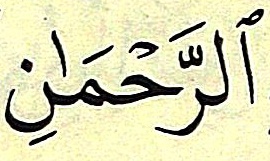 ٱلرَّحْمَٰنِ